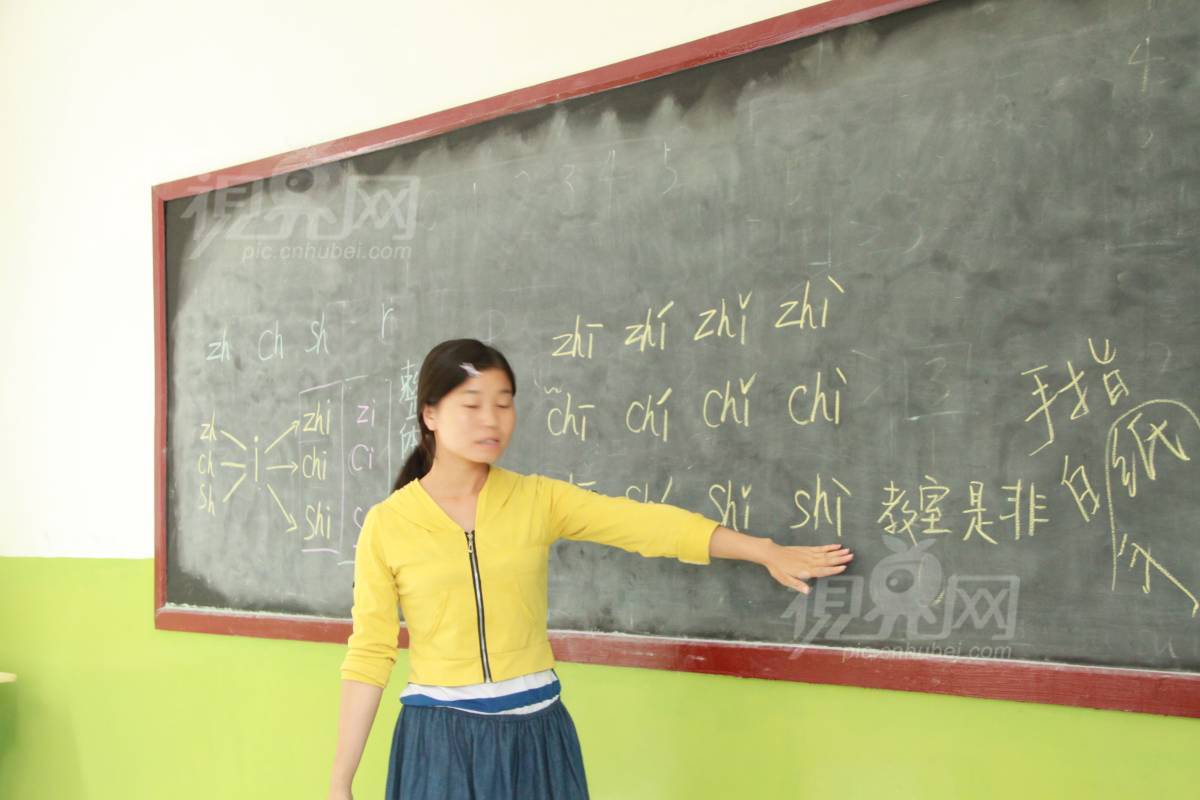 视界网
pic.cnhubei.com
1 2 3 4 5
zh ch sh r
整体
zh ch sh
i
zhi chi shi
zi ci
zhī zhí zhǐ zhì
chī chí chǐ chì
shí shǐ shì 教室 是非
手指
白纸
个
视界网
pic.cnhubei.com